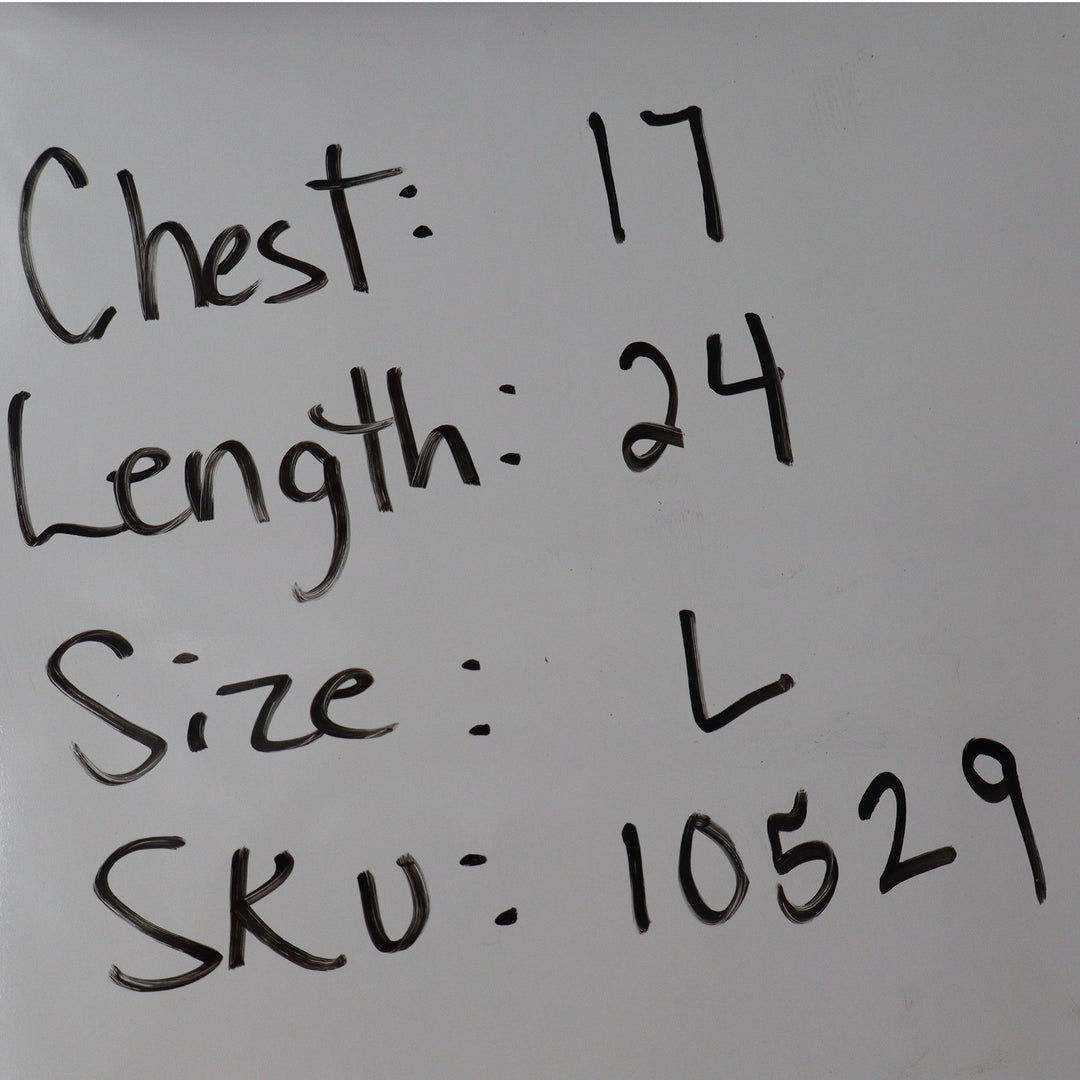 Chest: 17
Length: 24
Size: L
SKU: 10529